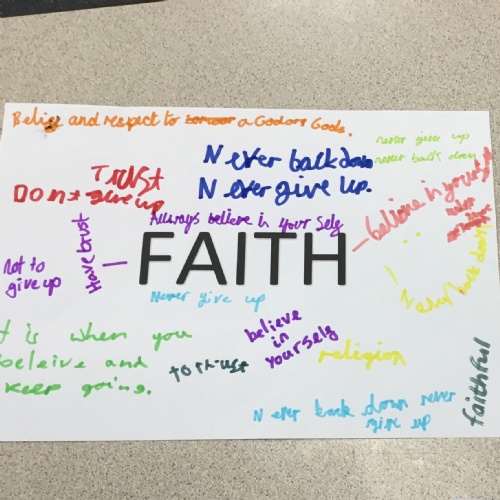 Belief and respect to a God or Gods.
never give up
never back down
Never back down
Never give up.
Trust
Dont give up
Always believe in your self
believe in yourself
Have trust
not to
give up
FAITH
Never back down
Never give up
It is when you
beleive and
keep going.
believe
in
yourself
to trust
religion
faithful
Never back down never
give up